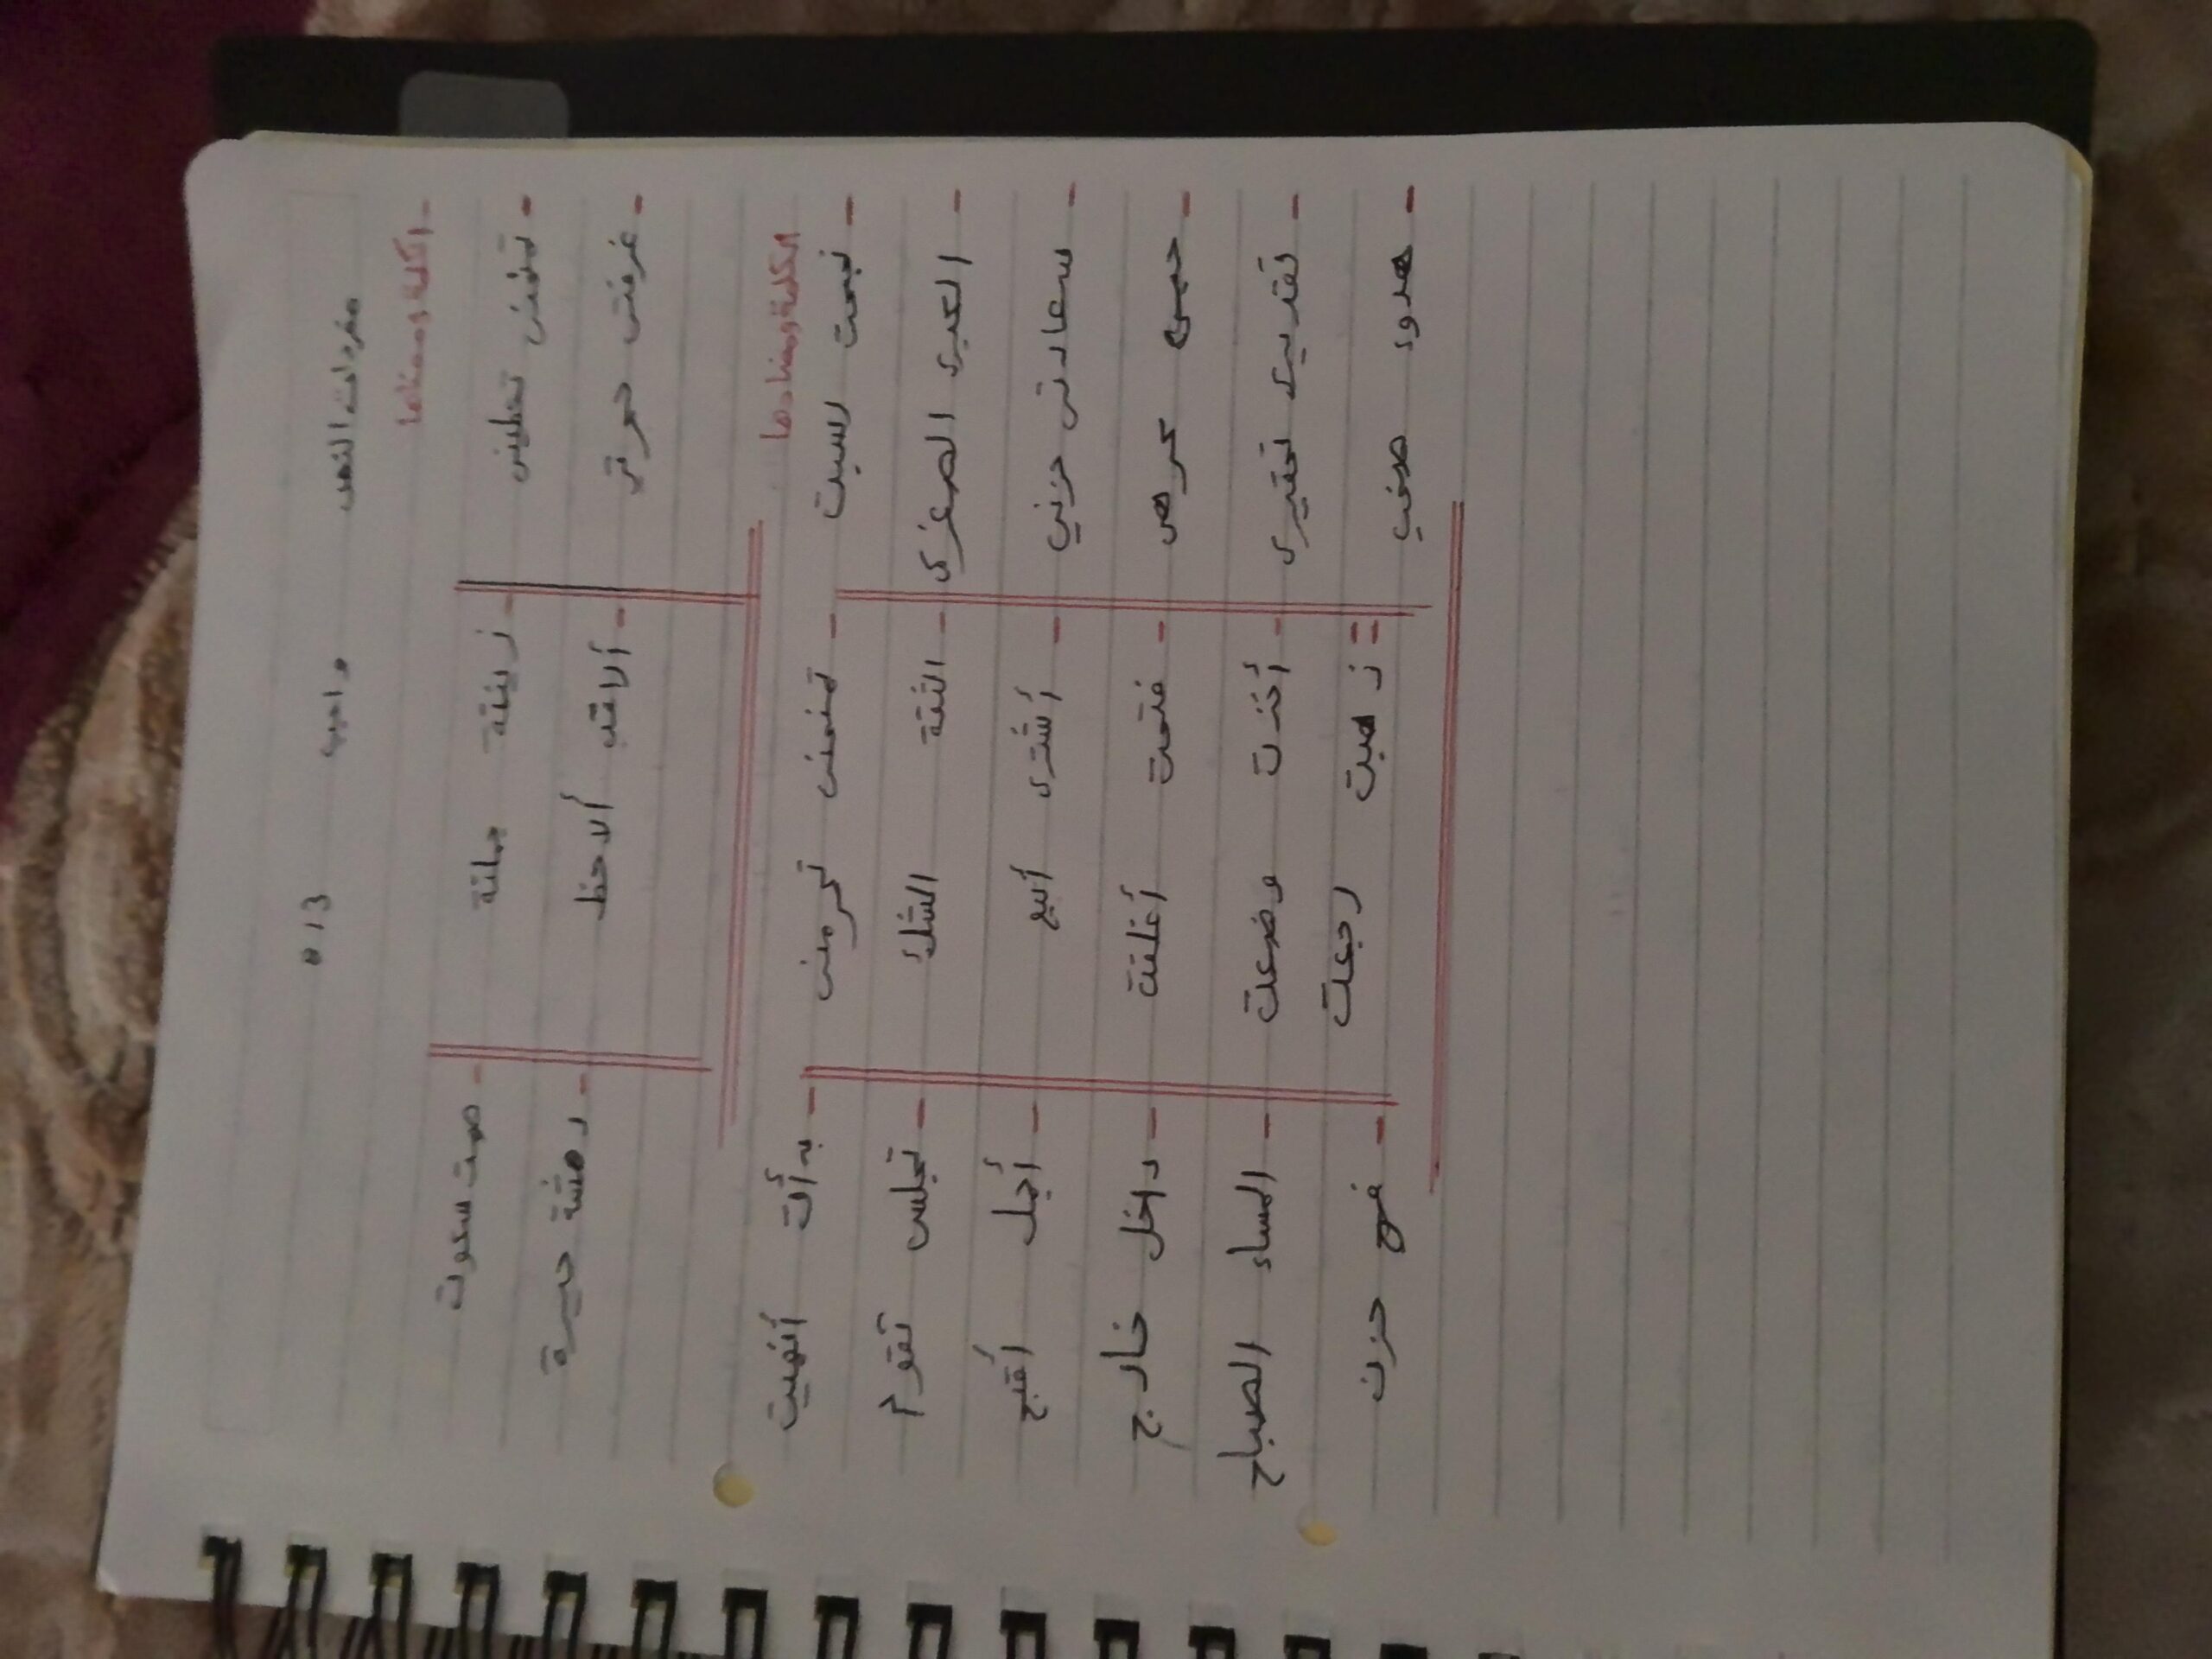 مفردات النص واجب ٥١٣
- الكلمة ومعناها
- تغمض تطبق - زينة حلية - صمت سكوت
- غرفت حوتي - ألاقب ألاحظ - دهشة حيرة
الكلمة ومضادها
- نجحت رسبت - تغمض - بدأت أنهيت
- الكبرى الصغرى - الثقة الشك - تجلس تقوم
- سعادتي حزني - أشتري أبيع - أجمل أقبح
- حبي كره - فتحت أغلقت - داخل خارج
- تقديري تحقيري - أخذت وضعت - المساء الصباح
- هدوء صخب = ذهبت رجعت - فرح حزن